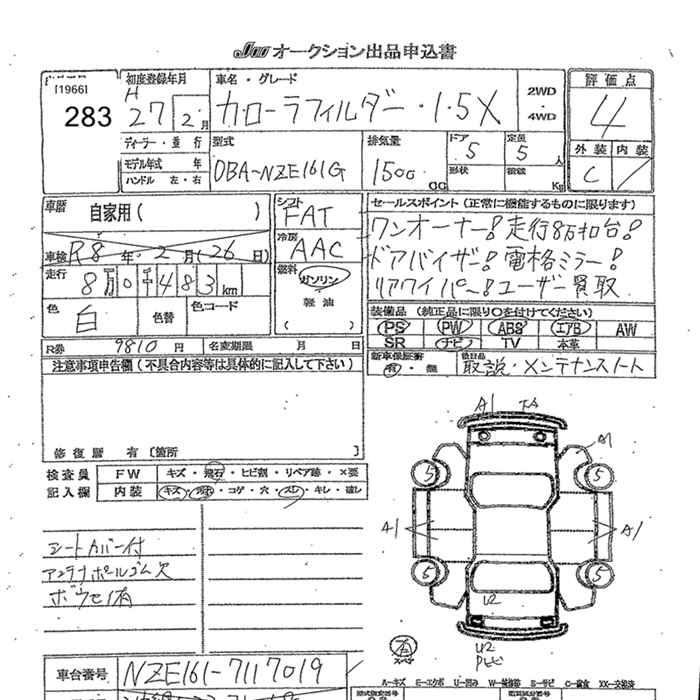 JU オークション出品申込書
[1966]
283
初度登録年月
H 27 2月
車名・グレード
カローラフィルダー・1.5X
2WD
・
4WD
評価点
4
外装 内装
C
ディーラー・並行
モデル年式 年
ハンドル 左・右
型式
DBA-NZE161G
排気量
1500 CC
ドア 5
形状
定員 5人
積載 Kg
車歴 自家用( )
車検 R8年2月(26日)
走行 8万0千483km
色 白
色替
色コード
シフト FAT
冷房 AAC
燃料 ガソリン
軽油
( )
セールスポイント(正常に機能するものに限ります)
ワンオーナー!走行8万キロ台!
ドアバイザー!電格ミラー!
リアワイパー!ユーザー買取
装備品(純正品に限り○を付けてください)
PS PW ABS エアB AW
SR ナビ TV 本革
R券 9810円 名変期限 月 日
新車保証書 有・無
後日品 取説・メンテナンスノート
注意事項申告欄(不具合内容等は具体的に記入して下さい)
修復歴 有〔箇所 〕
検査員 FW キズ・飛石・ヒビ割・リペア跡・×要
記入欄 内装 キズ・汚れ・コゲ・穴・スレ・キレ・破し
シートカバー付
アンテナポールゴム欠
ボウセイ有
A1
A1
5
5
A1
A1
5
5
U2
U2
スペア
車台番号 NZE161-7117019
A…キズ E…エクボ U…凹み W…補修跡 S…サビ C…腐食 XX…交換済